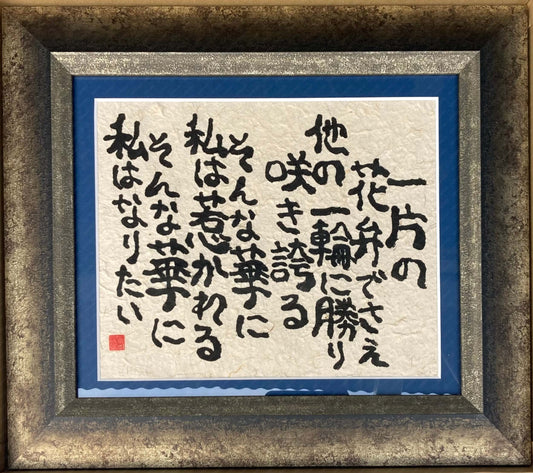 一片の
花弁でさえ
他の一輪に勝り
咲き誇る
そんな華に
私は惹かれる
そんな華に
私はなりたい